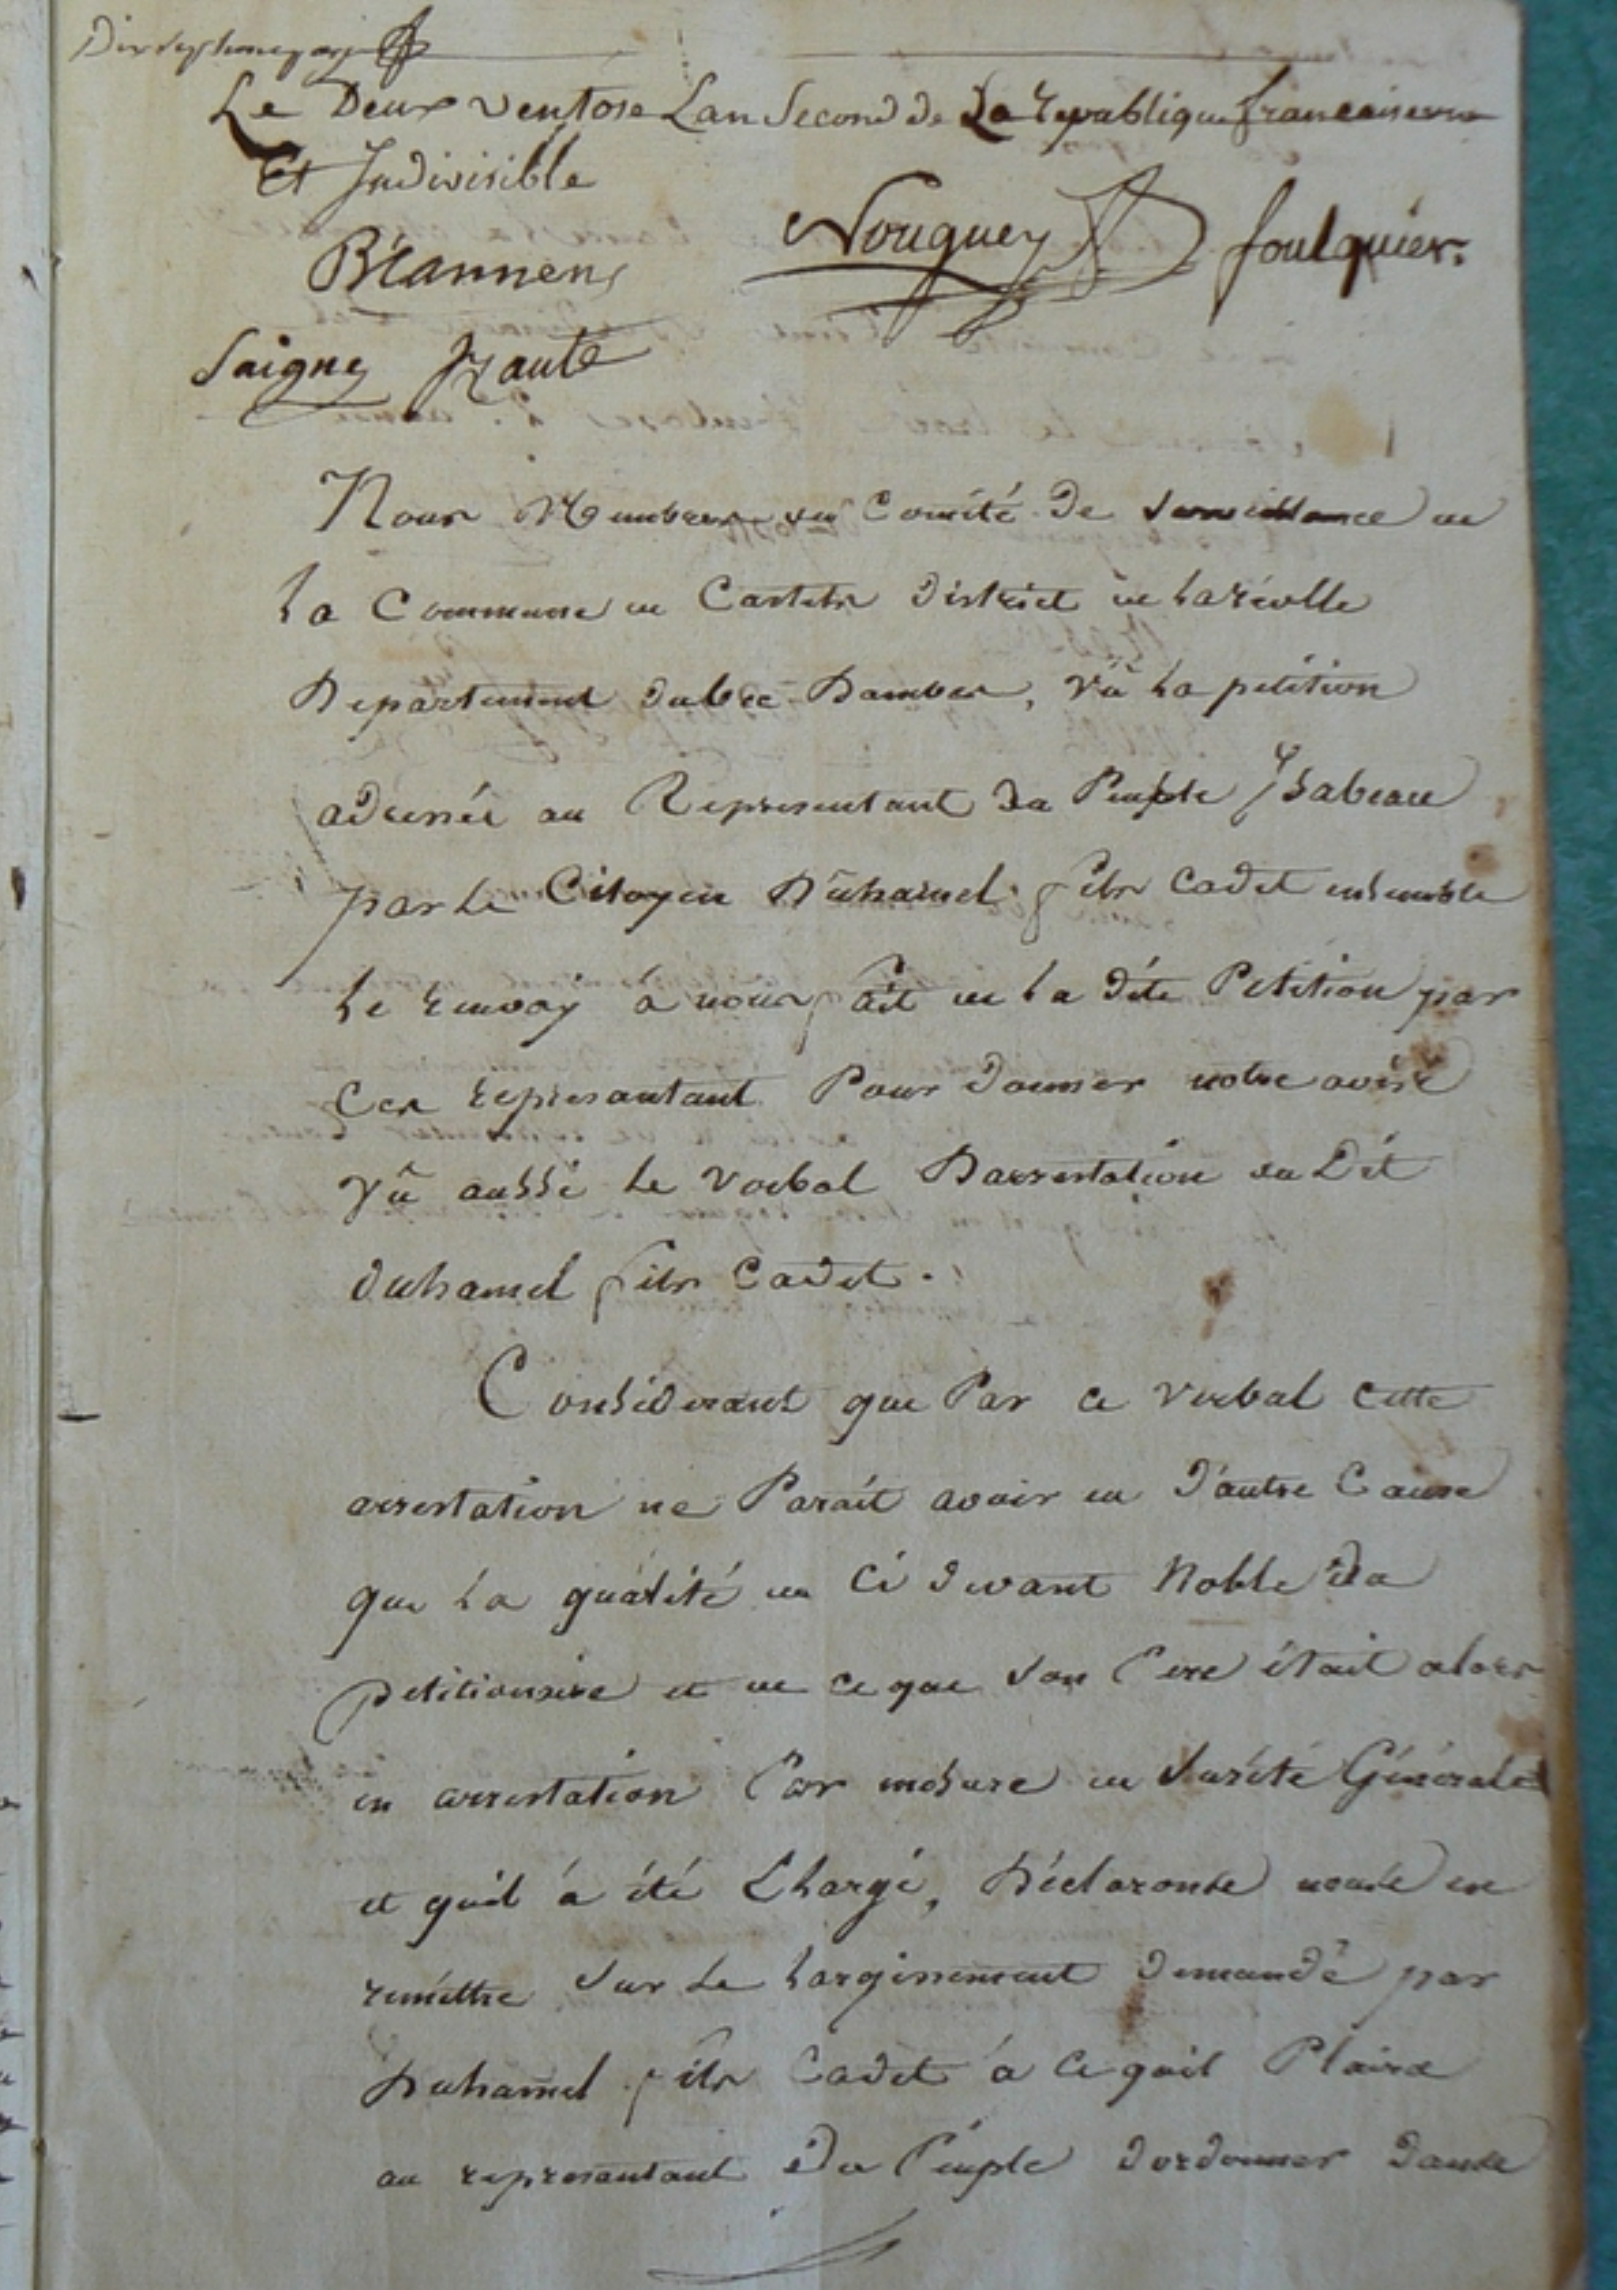 Le Deux ventose Lan Second de La republique francaise une
Et Indivisible
Biannens Nouguey foulquier
Saigne Zante
Nous Membres du Comité De surveillance de
La Commune de Castets District de Lareolle
Departement du bec Dambes, vû La petition
adressée au Representant Du Peuple Ysabeau
par Le Citoyen Duhamel fils cadet ensemble
Le renvoy á nous fait de La dite Petition par
Ces represantant Pour donner notre avis
vû aussi Le verbal Darrestation du Dit
duhamel fils Cadet.
Considerant que Par ce verbal cette
arrestation ne Parait avoir eu d'autre Cause
que La qualité de Ci devant Noble Du
petitionaire et de ce que son Pere était alors
en arrestation Par mesure de sureté Générale
et quil á été Elargi, Déclarons nous en
reméttre sur Le Largissement demandé par
Duhamel fils Cadet á ce quil Plaira
au represantant Du Peuple dordonner dans